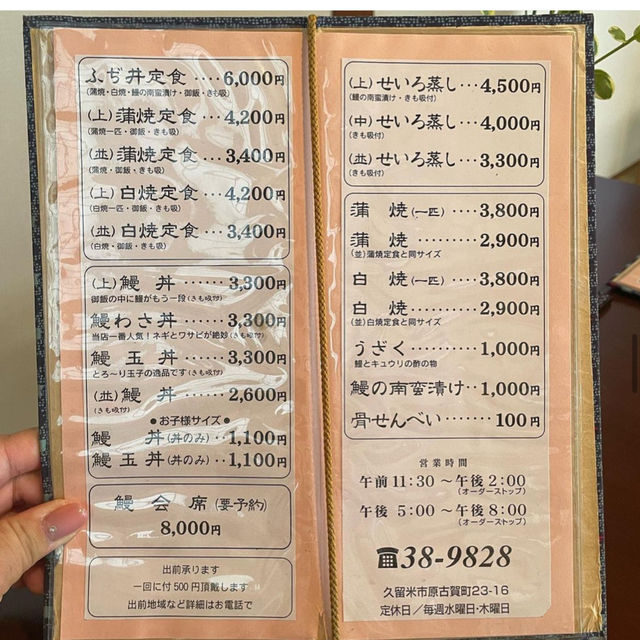 ふぢ丼定食‥‥6,000円
(蒲焼・白焼・鰻の南蛮漬け・御飯・きも吸)
(上)蒲焼定食‥‥4,200円
(蒲焼一匹・御飯・きも吸)
(並)蒲焼定食‥‥3,400円
(蒲焼・御飯・きも吸)
(上)白焼定食‥‥4,200円
(白焼一匹・御飯・きも吸)
(並)白焼定食‥‥3,400円
(白焼・御飯・きも吸)
(上)鰻丼‥‥‥3,300円
御飯の中に鰻がもう一段(きも吸付)
鰻わさ丼‥‥‥3,300円
当店一番人気！ネギとワサビが絶妙(きも吸付)
鰻玉丼‥‥‥3,300円
とろ～り玉子の逸品です(きも吸付)
(並)鰻丼‥‥‥2,600円
(きも吸付)
●お子様サイズ●
鰻丼(丼のみ)‥1,100円
鰻玉丼(丼のみ)‥1,100円
鰻会席(要予約)
8,000円
出前承ります
一回に付500円頂戴します
出前地域など詳細はお電話で
(上)せいろ蒸し‥4,500円
(鰻の南蛮漬け・きも吸付)
(中)せいろ蒸し‥4,000円
(きも吸付)
(並)せいろ蒸し‥3,300円
(きも吸付)
蒲焼(一匹)‥‥3,800円
蒲焼‥‥‥‥2,900円
(並)蒲焼定食と同サイズ
白焼(一匹)‥‥3,800円
白焼‥‥‥‥2,900円
(並)白焼定食と同サイズ
うざく‥‥‥‥1,000円
鰻とキュウリの酢の物
鰻の南蛮漬け‥1,000円
骨せんべい‥‥‥100円
営業時間
午前11:30～午後2:00
(オーダーストップ)
午後5:00～午後8:00
(オーダーストップ)
☎38-9828
久留米市原古賀町23-16
定休日／毎週水曜日・木曜日